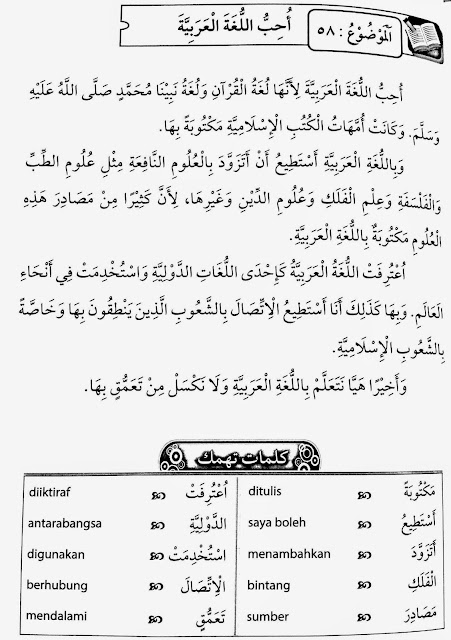 الْمَوْضُوْعُ : ٥٨
أُحِبُّ اللُّغَةَ الْعَرَبِيَّةَ
أُحِبُّ اللُّغَةَ الْعَرَبِيَّةَ لِأَنَّهَا لُغَةُ الْقُرْآنِ وَلُغَةُ نَبِيِّنَا مُحَمَّدٍ صَلَّى اللَّهُ عَلَيْهِ
وَسَلَّمَ. وَكَانَتْ أُمَّهَاتُ الْكُتُبِ الْإِسْلَامِيَّةِ مَكْتُوبَةً بِهَا.
وَبِاللُّغَةِ الْعَرَبِيَّةِ أَسْتَطِيعُ أَنْ أَتَزَوَّدَ بِالْعُلُومِ النَّافِعَةِ مِثْلِ عُلُومِ الطِّبِّ
وَالْفَلْسَفَةِ وَعِلْمِ الْفَلَكِ وَعُلُومِ الدِّيْنِ وَغَيْرِهَا، لِأَنَّ كَثِيْرًا مِنْ مَصَادِرَ هَذِهِ
الْعُلُومِ مَكْتُوبَةٌ بِاللُّغَةِ الْعَرَبِيَّةِ.
اُعْتُرِفَتْ اللُّغَةُ الْعَرَبِيَّةُ كَإِحْدَى اللُّغَاتِ الدَّوْلِيَّةِ وَاسْتُخْدِمَتْ فِي أَنْحَاءِ
الْعَالَمِ. وَبِهَا كَذَلِكَ أَنَا أَسْتَطِيعُ الْاِتِّصَالَ بِالشُّعُوبِ الَّذِينَ يَنْطِقُونَ بِهَا وَخَاصَّةً
بِالشُّعُوبِ الْإِسْلَامِيَّةِ.
وَأَخِيْرًا هَيَّا نَتَعَلَّمْ بِاللُّغَةِ الْعَرَبِيَّةِ وَلَا نَكْسَلْ مِنْ تَعَمُّقٍ بِهَا.
كلمات تهمك
مَكْتُوبَةً ditulis
أَسْتَطِيعُ saya boleh
أَتَزَوَّدَ menambahkan
الْفَلَكِ bintang
مَصَادِرَ sumber
اُعْتُرِفَتْ diiktiraf
الدَّوْلِيَّةِ antarabangsa
اسْتُخْدِمَتْ digunakan
الْاِتِّصَالَ berhubung
تَعَمُّقٍ mendalami